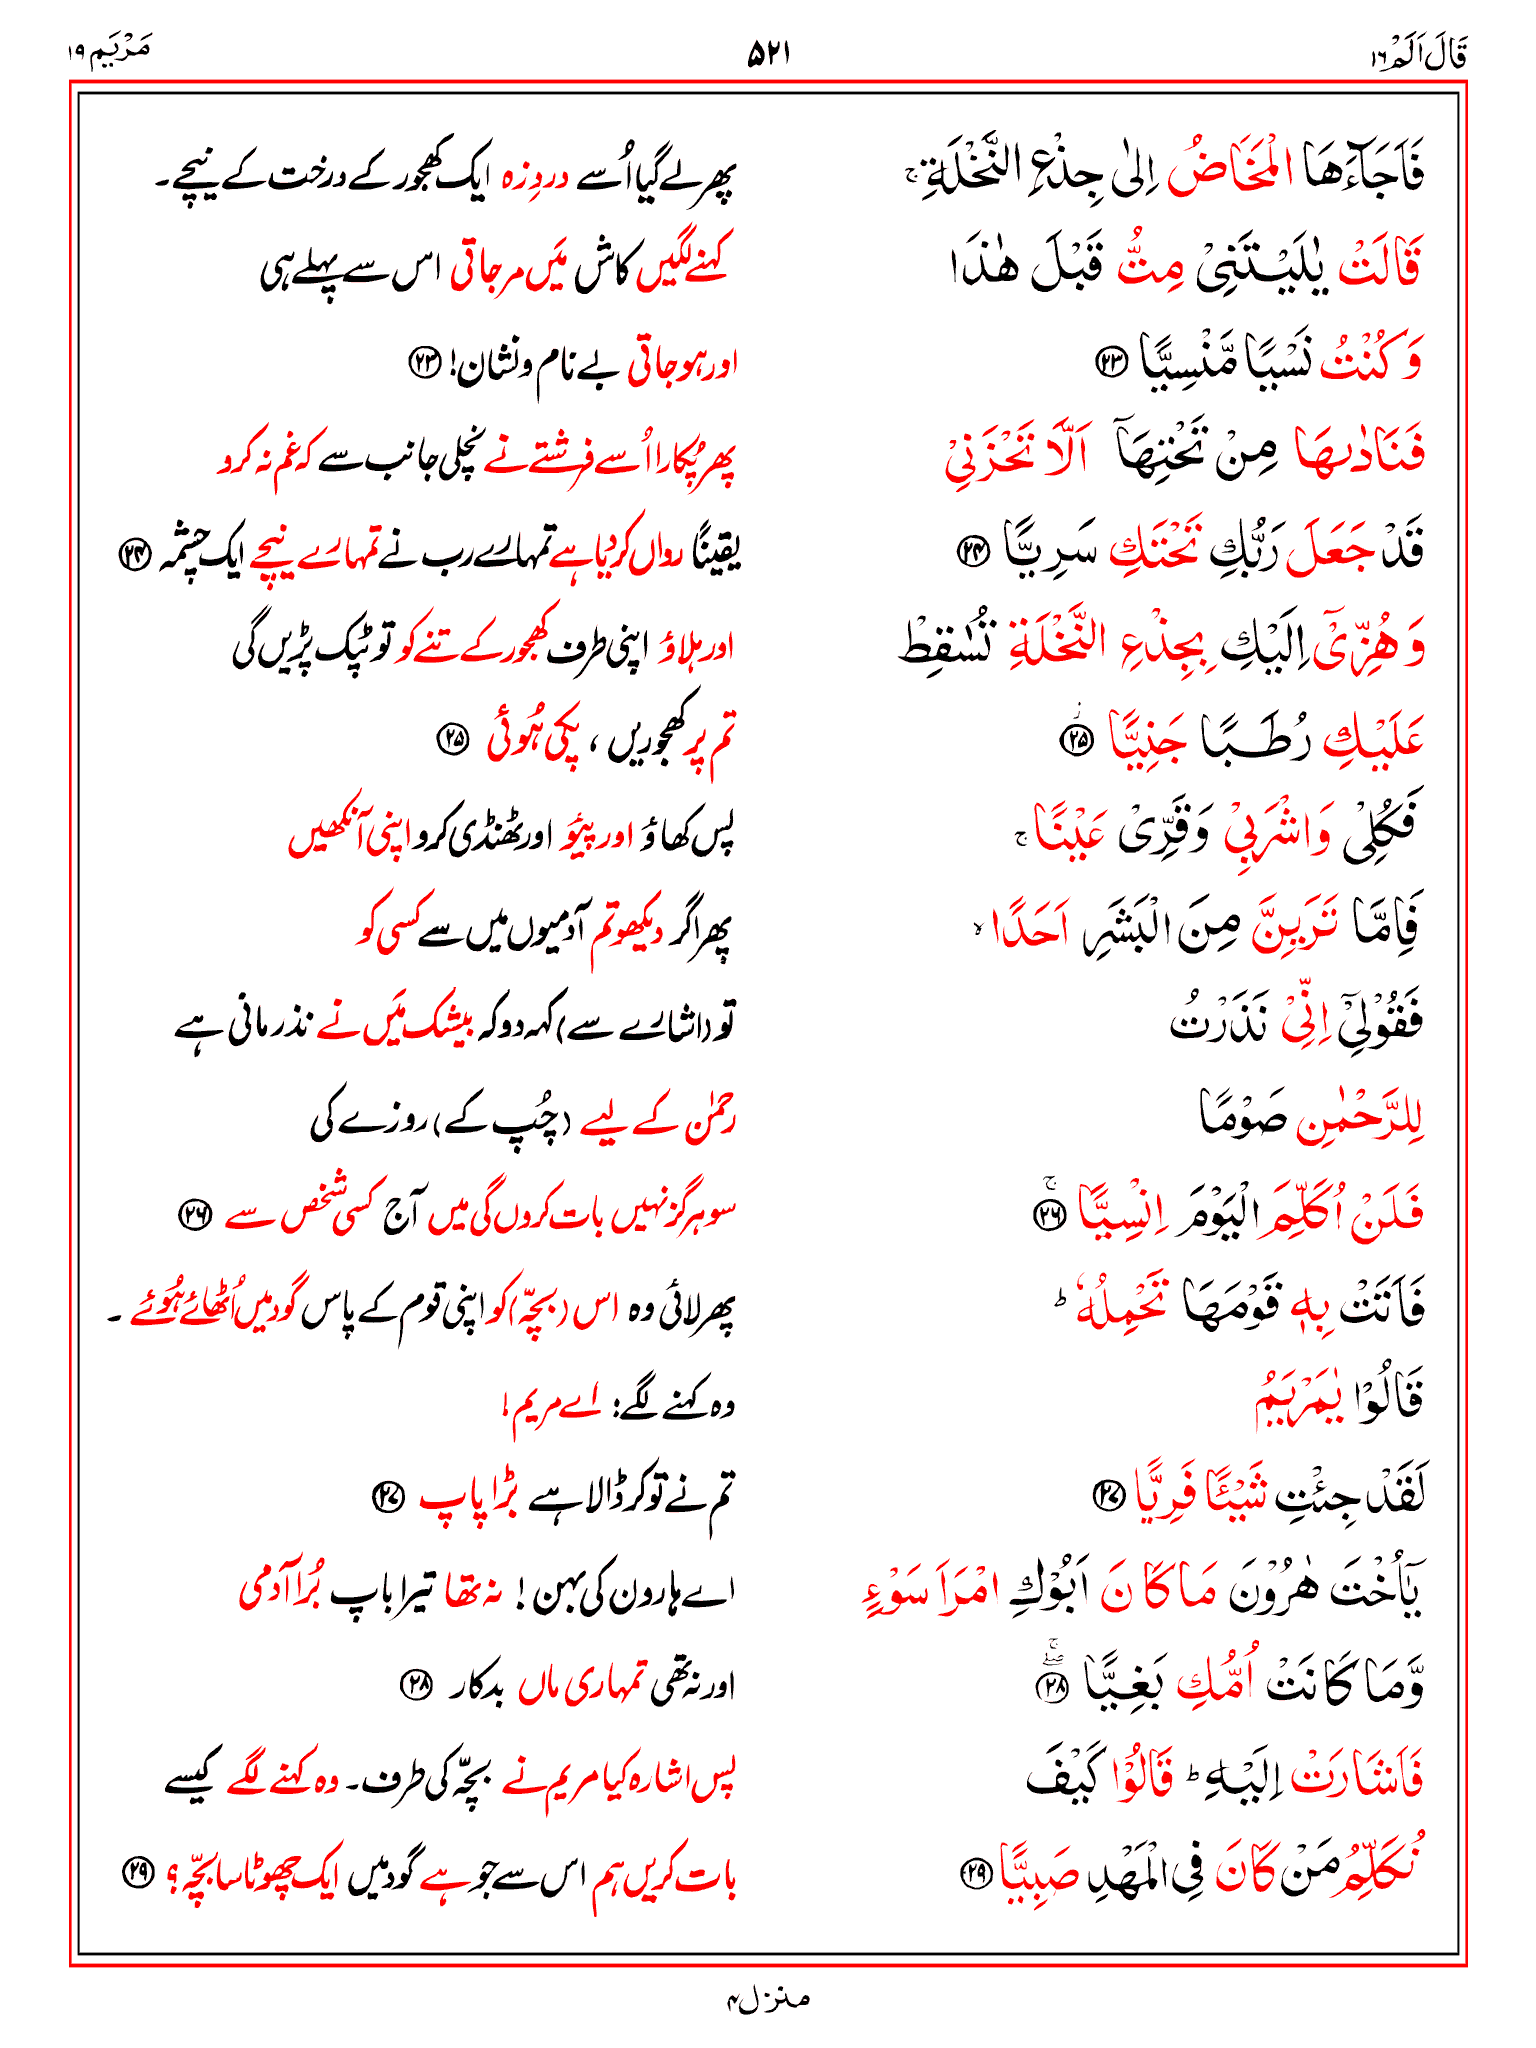 قَالَ اَلَمْ ١٦
٥٢١
مَرْیَم ١٩
فَاَجَآءَهَا الْمَخَاضُ اِلٰى جِذْعِ النَّخْلَةِ ۚ
پھر لے گیا اُسے دردِ زہ ایک کھجور کے درخت کے نیچے۔
قَالَتْ يٰلَيْتَنِيْ مِتُّ قَبْلَ هٰذَا
کہنے لگیں کاش مَیں مر جاتی اس سے پہلے ہی
وَكُنْتُ نَسْيًا مَّنْسِيًّا ﴿٢٣﴾
اور ہو جاتی بے نام و نشان! ﴿۲۳﴾
فَنَادٰىهَا مِنْ تَحْتِهَآ اَلَّا تَحْزَنِيْ
پھر پُکارا اُسے فرشتے نے نچلی جانب سے کہ غم نہ کرو
قَدْ جَعَلَ رَبُّكِ تَحْتَكِ سَرِيًّا ﴿٢٤﴾
یقینًا رواں کر دیا ہے تمہارے رب نے تمہارے نیچے ایک چشمہ ﴿۲۴﴾
وَهُزِّيْٓ اِلَيْكِ بِجِذْعِ النَّخْلَةِ تُسٰقِطْ
اور ہلاؤ اپنی طرف کھجور کے تنے کو تو ٹپک پڑیں گی
عَلَيْكِ رُطَبًا جَنِيًّا ﴿٢٥﴾ۙ
تم پر کھجوریں ، پکی ہُوئی ﴿۲۵﴾
فَكُلِيْ وَاشْرَبِيْ وَقَرِّيْ عَيْنًا ۚ
پس کھاؤ اور پیئو اور ٹھنڈی کرو اپنی آنکھیں
فَاِمَّا تَرَيِنَّ مِنَ الْبَشَرِ اَحَدًا ۙ
پھر اگر دیکھو تم آدمیوں میں سے کسی کو
فَقُوْلِيْٓ اِنِّيْ نَذَرْتُ
تو (اشارے سے) کہہ دو کہ بیشک مَیں نے نذر مانی ہے
لِلرَّحْمٰنِ صَوْمًا
رحمٰن کے لیے (چُپ کے) روزے کی
فَلَنْ اُكَلِّمَ الْيَوْمَ اِنْسِيًّا ﴿٢٦﴾ۚ
سو ہرگز نہیں بات کروں گی میں آج کسی شخص سے ﴿۲۶﴾
فَاَتَتْ بِهٖ قَوْمَهَا تَحْمِلُهٗ ؕ
پھر لائی وہ اس (بچّہ) کو اپنی قوم کے پاس گود میں اُٹھائے ہُوئے ۔
قَالُوْا يٰمَرْيَمُ
وہ کہنے لگے: اے مریم!
لَقَدْ جِئْتِ شَيْـًٔا فَرِيًّا ﴿٢٧﴾
تم نے تو کر ڈالا ہے بڑا پاپ ﴿۲۷﴾
يٰٓاُخْتَ هٰرُوْنَ مَا كَانَ اَبُوْكِ امْرَاَ سَوْءٍ
اے ہارون کی بہن ! نہ تھا تیرا باپ بُرا آدمی
وَّمَا كَانَتْ اُمُّكِ بَغِيًّا ﴿٢٨﴾ۖۚ
اور نہ تھی تمہاری ماں بدکار ﴿۲۸﴾
فَاَشَارَتْ اِلَيْهِ ؕ قَالُوْا كَيْفَ
پس اشارہ کیا مریم نے بچّہ کی طرف۔ وہ کہنے لگے کیسے
نُكَلِّمُ مَنْ كَانَ فِي الْمَهْدِ صَبِيًّا ﴿٢٩﴾
بات کریں ہم اس سے جو ہے گود میں ایک چھوٹا سا بچّہ؟ ﴿۲۹﴾
منزل ۴